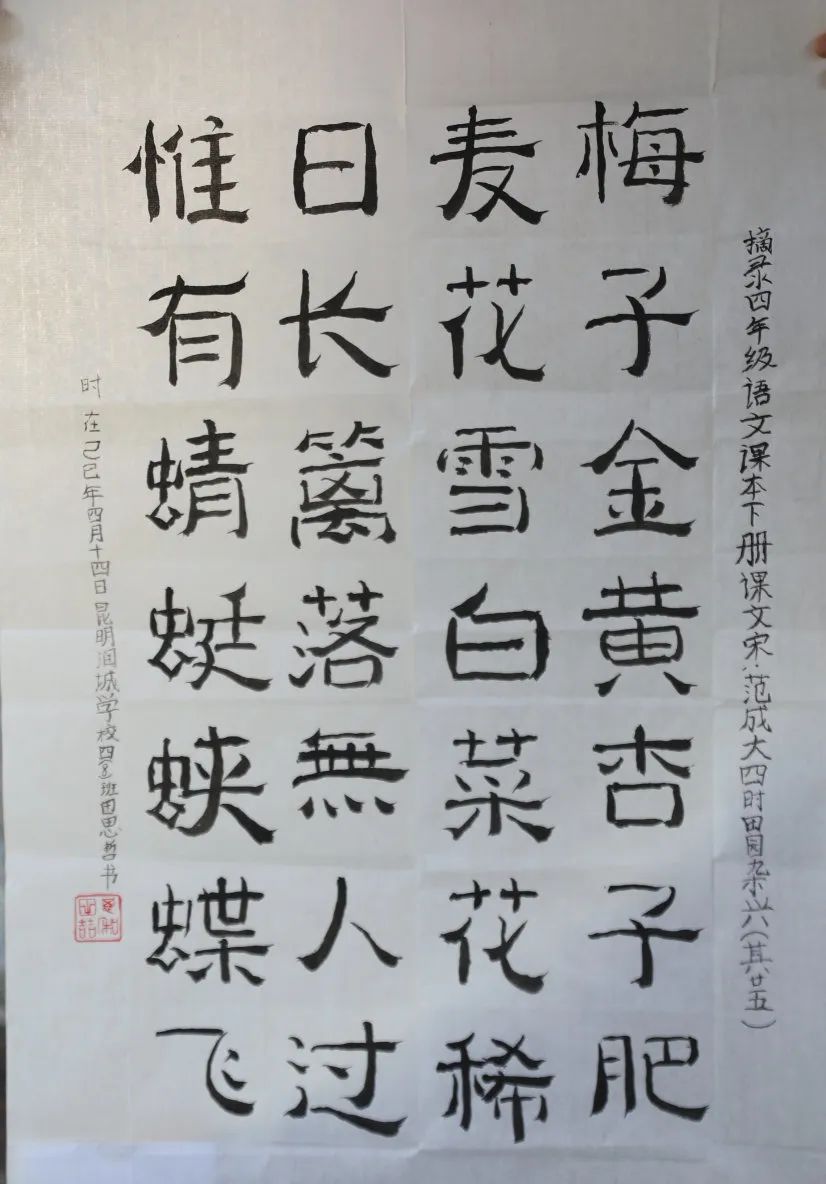 摘录四年级语文课本下册课文宋·范成大四时田园杂兴(其廿五)
梅子金黄杏子肥
麦花雪白菜花稀
日长篱落無人过
惟有蜻蜓蛱蝶飞
时在己巳年四月十四日昆明润城学校四班田思哲书